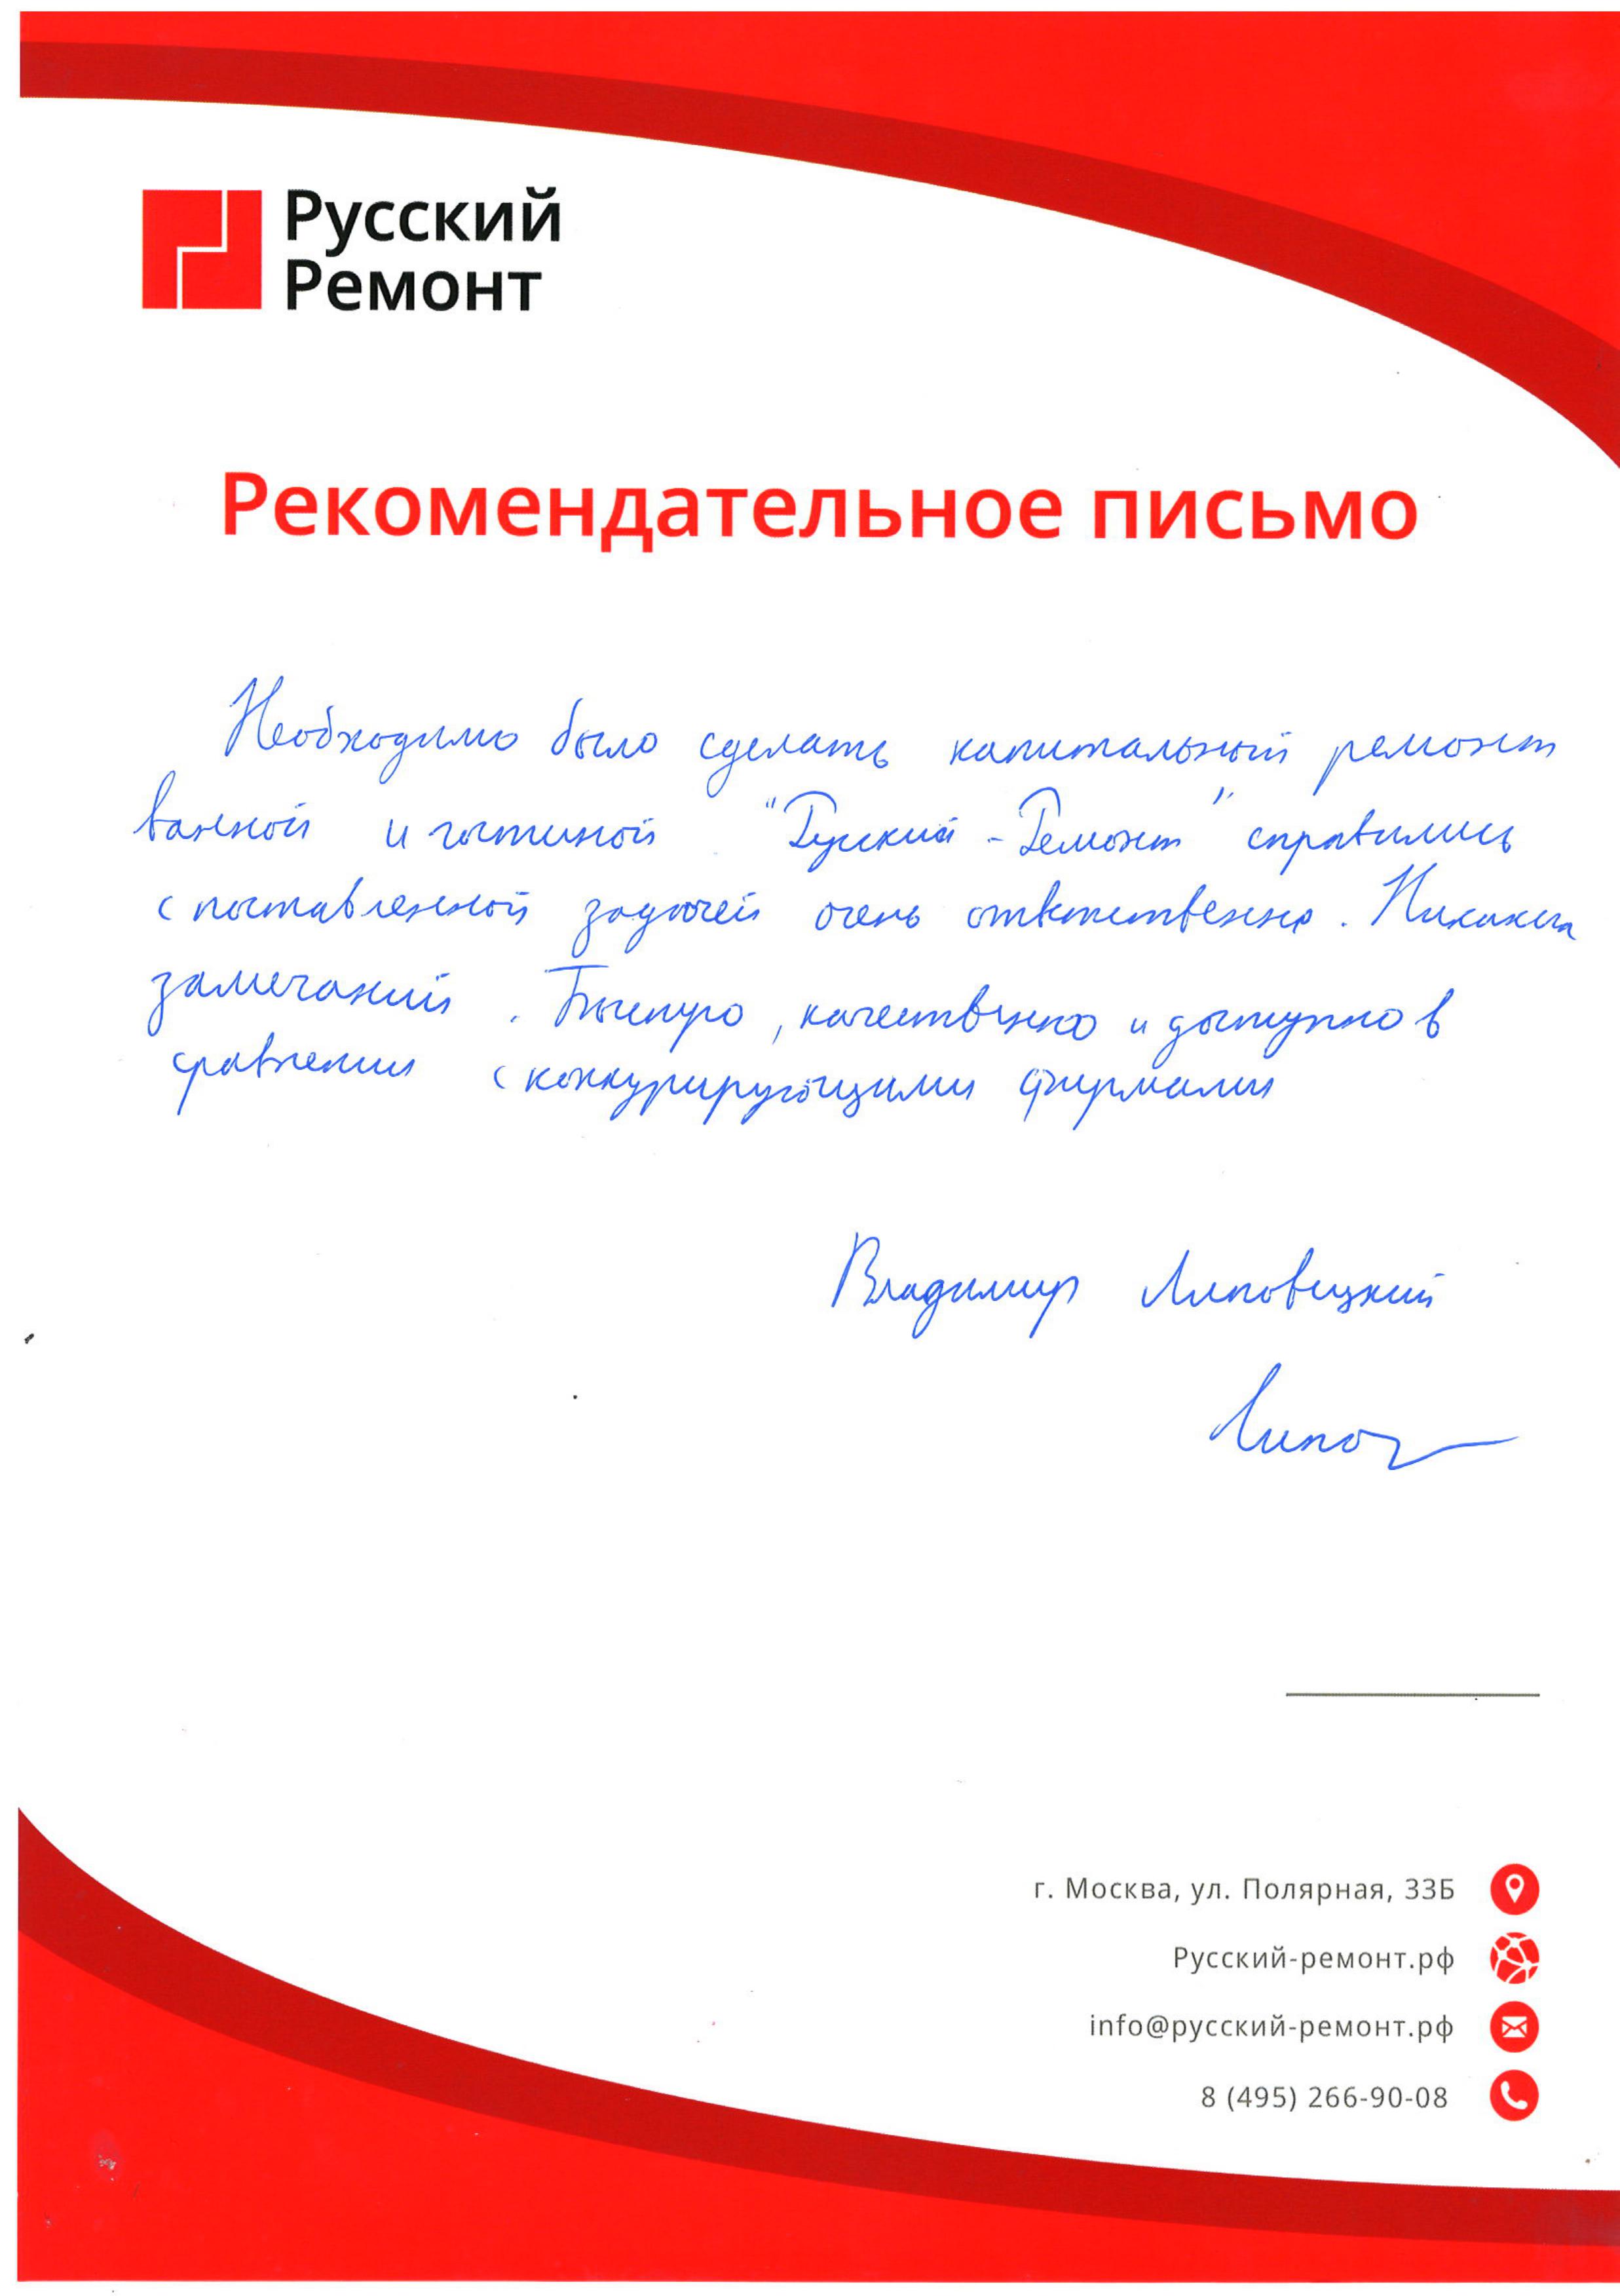 Русский
Ремонт
Рекомендательное письмо
Необходимо было сделать капитальный ремонт
ванной и гостиной "Русский - Ремонт" справились
с поставленной задачей очень ответственно. Никаких
замечаний. Быстро, качественно и доступно в
сравнении с конкурирующими фирмами
Владимир Липовецкий
Липов
г. Москва, ул. Полярная, 33Б
Русский-ремонт.рф
info@русский-ремонт.рф
8 (495) 266-90-08